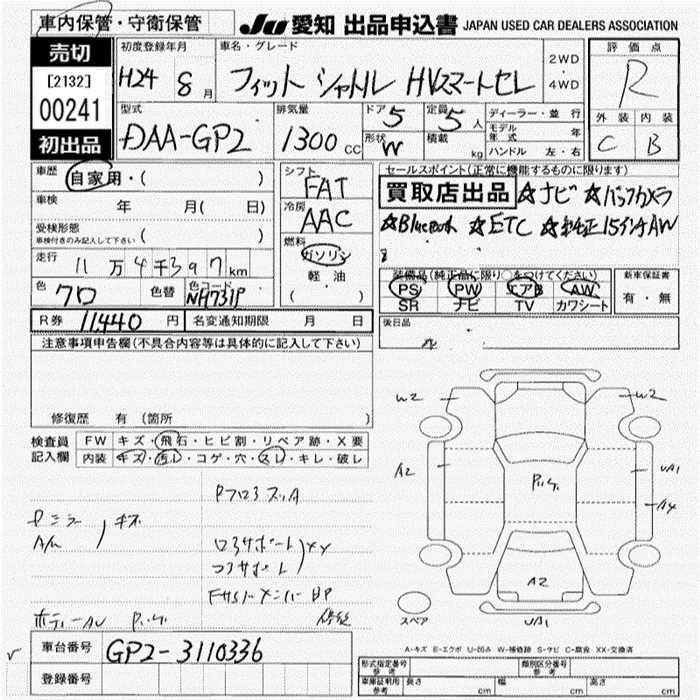 車内保管・守衛保管
JU 愛知 出品申込書 JAPAN USED CAR DEALERS ASSOCIATION
売切
[2132]
00241
初出品
初度登録年月
H24 8 月
車名・グレード
フィット シャトル HVスマートセレ
2WD
・
4WD
評価点
R
外装 内装
C B
型式
DAA-GP2
排気量
1300 CC
ドア 5
形状 W
定員 5 人
積載 kg
ディーラー・並行
モデル年式 年
ハンドル 左・右
車歴
自家用・( )
車検 年 月( 日)
受検形態
車検付きのみ記入して下さい ( )
走行
11万4千397km
色 クロ 色替 色コード NH731P
シフト
FAT
冷房
AAC
燃料
ガソリン
軽・油
( )
セールスポイント(正常に機能するものに限り)
買取店出品 ☆ナビ ☆バックカメラ
☆Bluetooth ☆ETC ☆純正15インチAW
装備品(純正品に限り○をつけてください)
PS PW エアB AW
SR ナビ TV カワシート
新車保証書
有・無
R券 11440 円 名変通知期限 月 日
後日品
注意事項申告欄(不具合内容等は具体的に記入して下さい)
修復歴 有(箇所 )
検査員
記入欄
FW キズ・飛石・ヒビ割・リペア跡・X要
内装 キズ・汚レ・コゲ・穴・スレ・キレ・破レ
A/M
キズ
ロアサポート
コアサポート
XX
BP
修理
ボディーAU
W2
W2
A2
UA1
A4
A2
UA1
スペア
A-キズ E-エクボ U-凹み W-補修跡 S-サビ C-腐食 XX-交換済
車台番号 GP2-3110336
登録番号
形式指定番号
参考
類別区分番号
参考
車庫証明用
参考
長さ cm 幅 cm 高さ cm